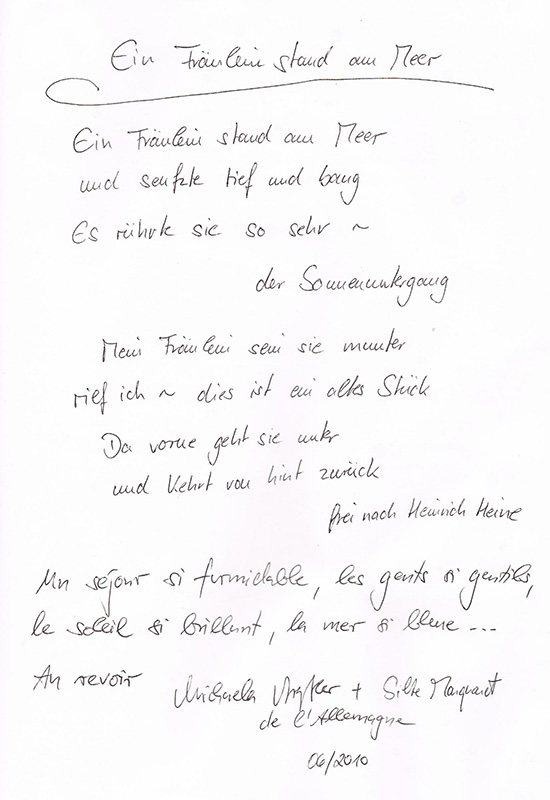 Ein Fräulein stand am Meer
Ein Fräulein stand am Meer
und seufzte tief und bang
Es rührte sie so sehr ~
der Sonnenuntergang
Mein Fräulein sein sie munter
rief ich ~ dies ist ein altes Stück
Da vorne geht sie unter
und kehrt von hint zurück
frei nach Heinrich Heine
Un séjour si formidable, les gents si gentils,
le soleil si brillant, la mer si bleue ...
Au revoir
Michaela + Silke Marquardt
de l'Allemagne
06/2010